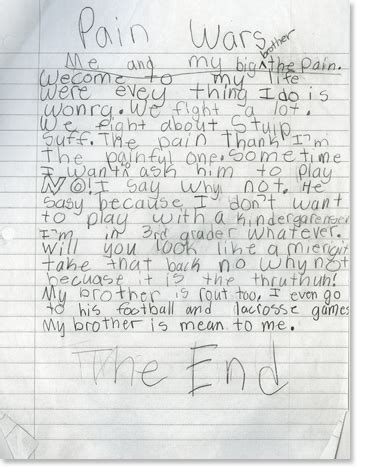 Pain Wars
Me and my big brother the Pain.
Wecome to my life
were evey thing I do is
wonrg. We fight a lot.
We fight about Stuip
Suff. The pain thank I'm
The painful one. Sometime
I want ask him to play
NO! I say why not. He
Sasy because I don't want
to play with a kindergarenser
I'm in 3rd grader whatever.
Will you look like a
take that back no why not
because it is the thruthuh!
My brother is rout too, I even go
to his football and lacrosse games
My brother is mean to me.
The End